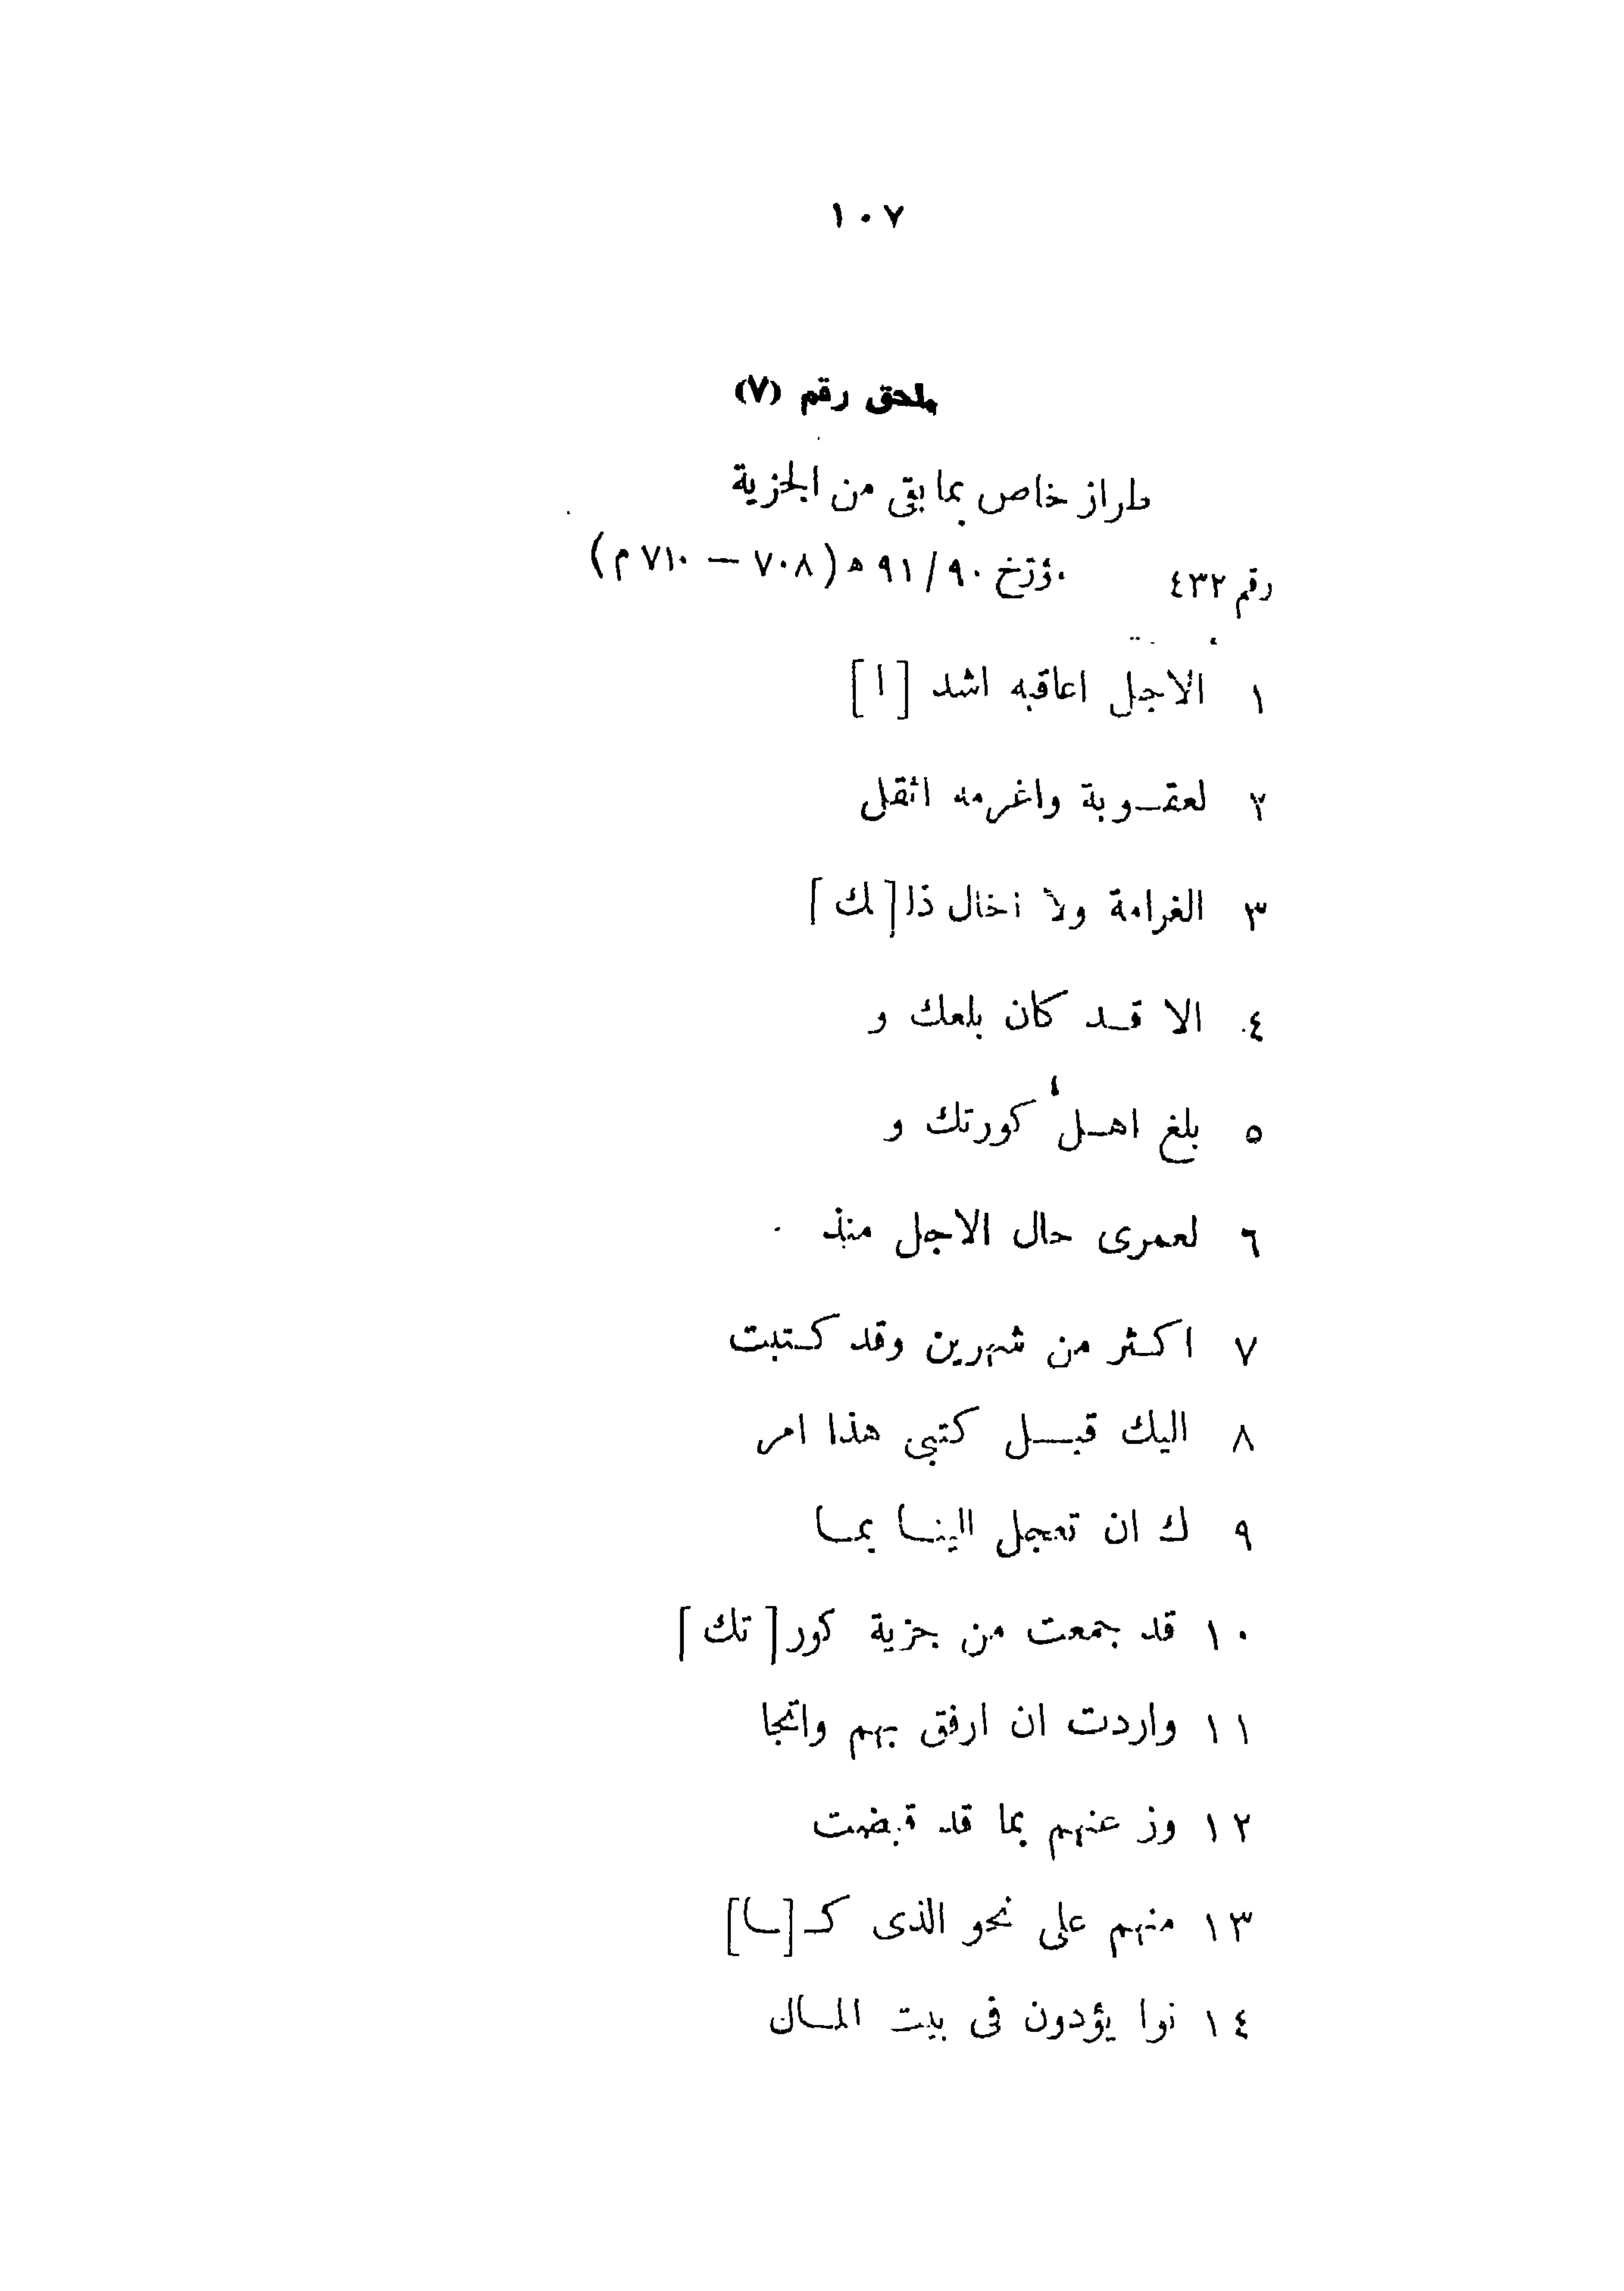 ١٠٧
ملحق رقم (٧)
طراز خاص بما بقى من الجزية
رقم ٤٣٢ مؤرخ ٩٠ / ٩١ ه (٧٠٨ — ٧١٠ م)
١ الاجل اعاقبه اشد [ ا ]
٢ لعقوبة واغرمه اثقل
٣ الغرامة ولا اخال ذا [ لك ]
٤ الا قد كان بلعك و
٥ بلغ اهل كورتك و
٦ لعمرى حال الاجل منذ
٧ اكثر من شهرين وقد كتبت
٨ اليك قبل كتبى هذا امر
٩ ك ان تعجل الينا بما
١٠ قد جمعت من جزية كور [ تك ]
١١ واردت ان ارفق بهم واتجا
١٢ وز عنهم بما قد قبضت
١٣ منهم على نحو الذى كـ [ ـا ]
١٤ نوا يؤدون فى بيت المال